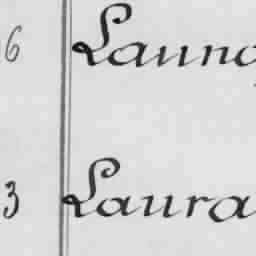 6 Launo
3 Laura